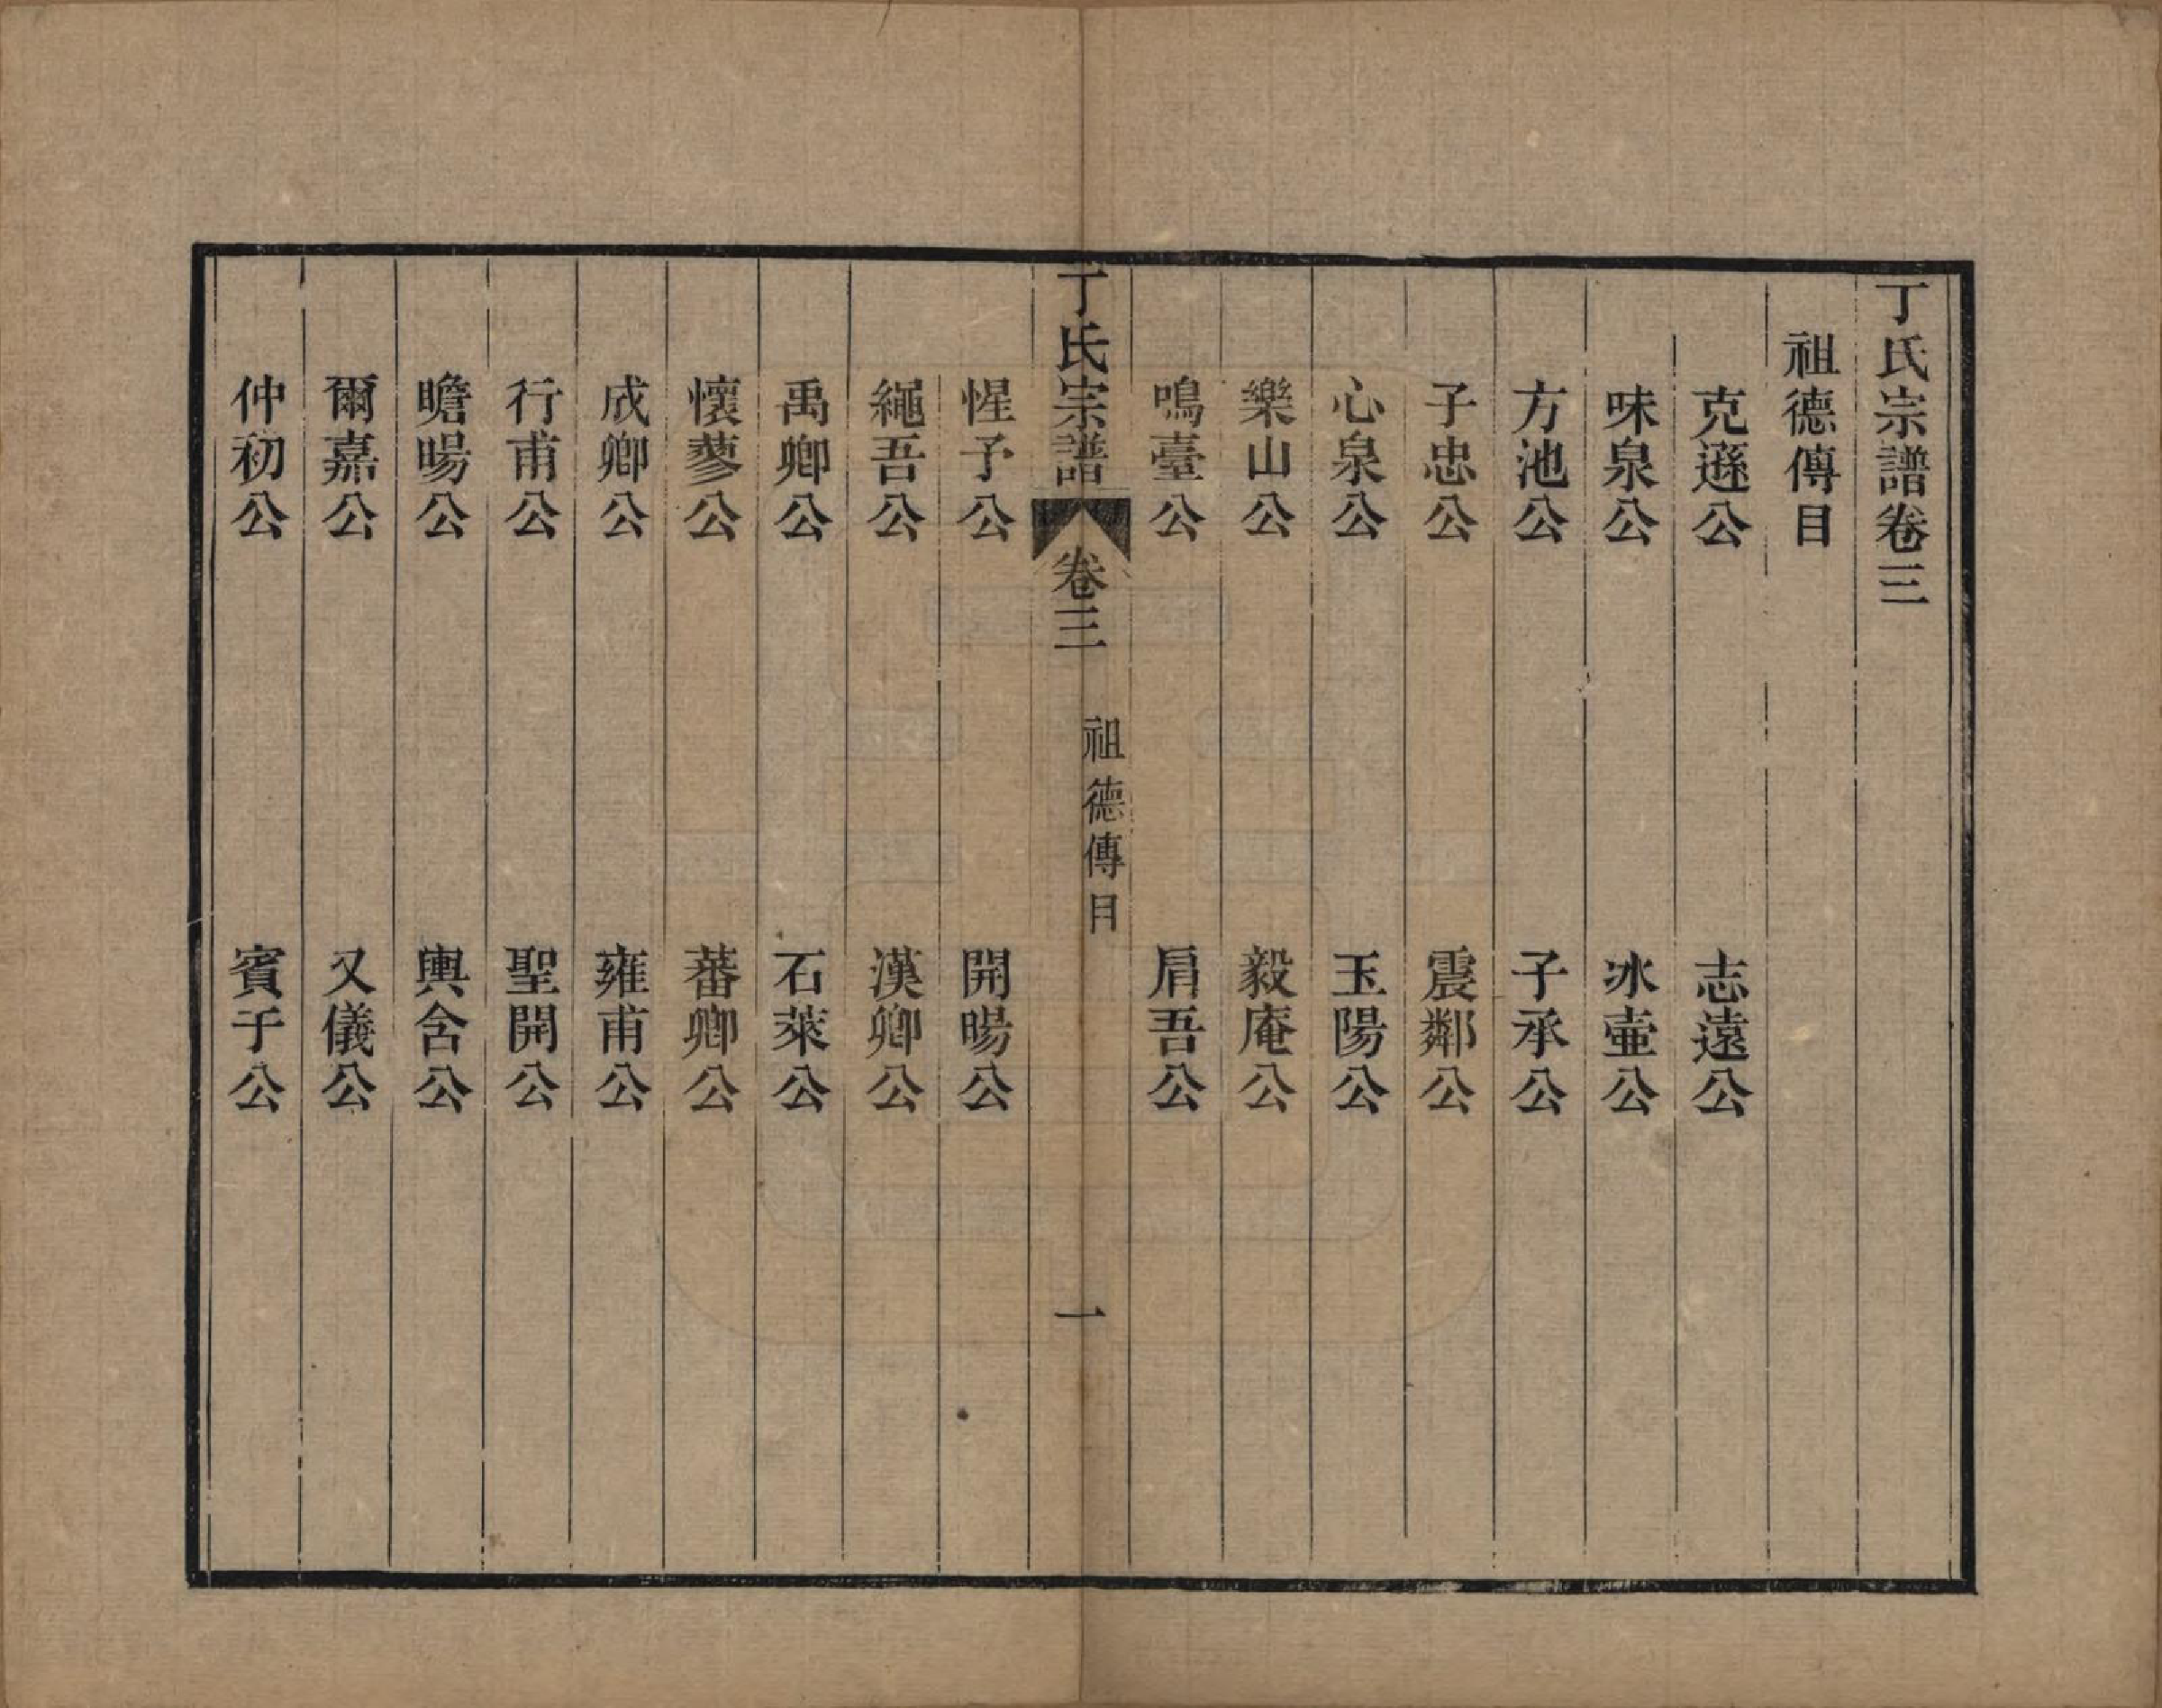 丁氏宗譜卷三
祖德傳目
克遜公　志遠公
味泉公　冰壷公
方池公　子承公
子忠公　震鄰公
心泉公　玉陽公
樂山公　毅庵公
鳴臺公　肩吾公
丁氏宗譜　卷三　祖德傳目　一
惺予公　開暘公
繩吾公　漢卿公
禹卿公　石萊公
懷蓼公　蕃卿公
成卿公　雍甫公
行甫公　聖開公
瞻暘公　輿含公
爾嘉公　又儀公
仲初公　賓于公